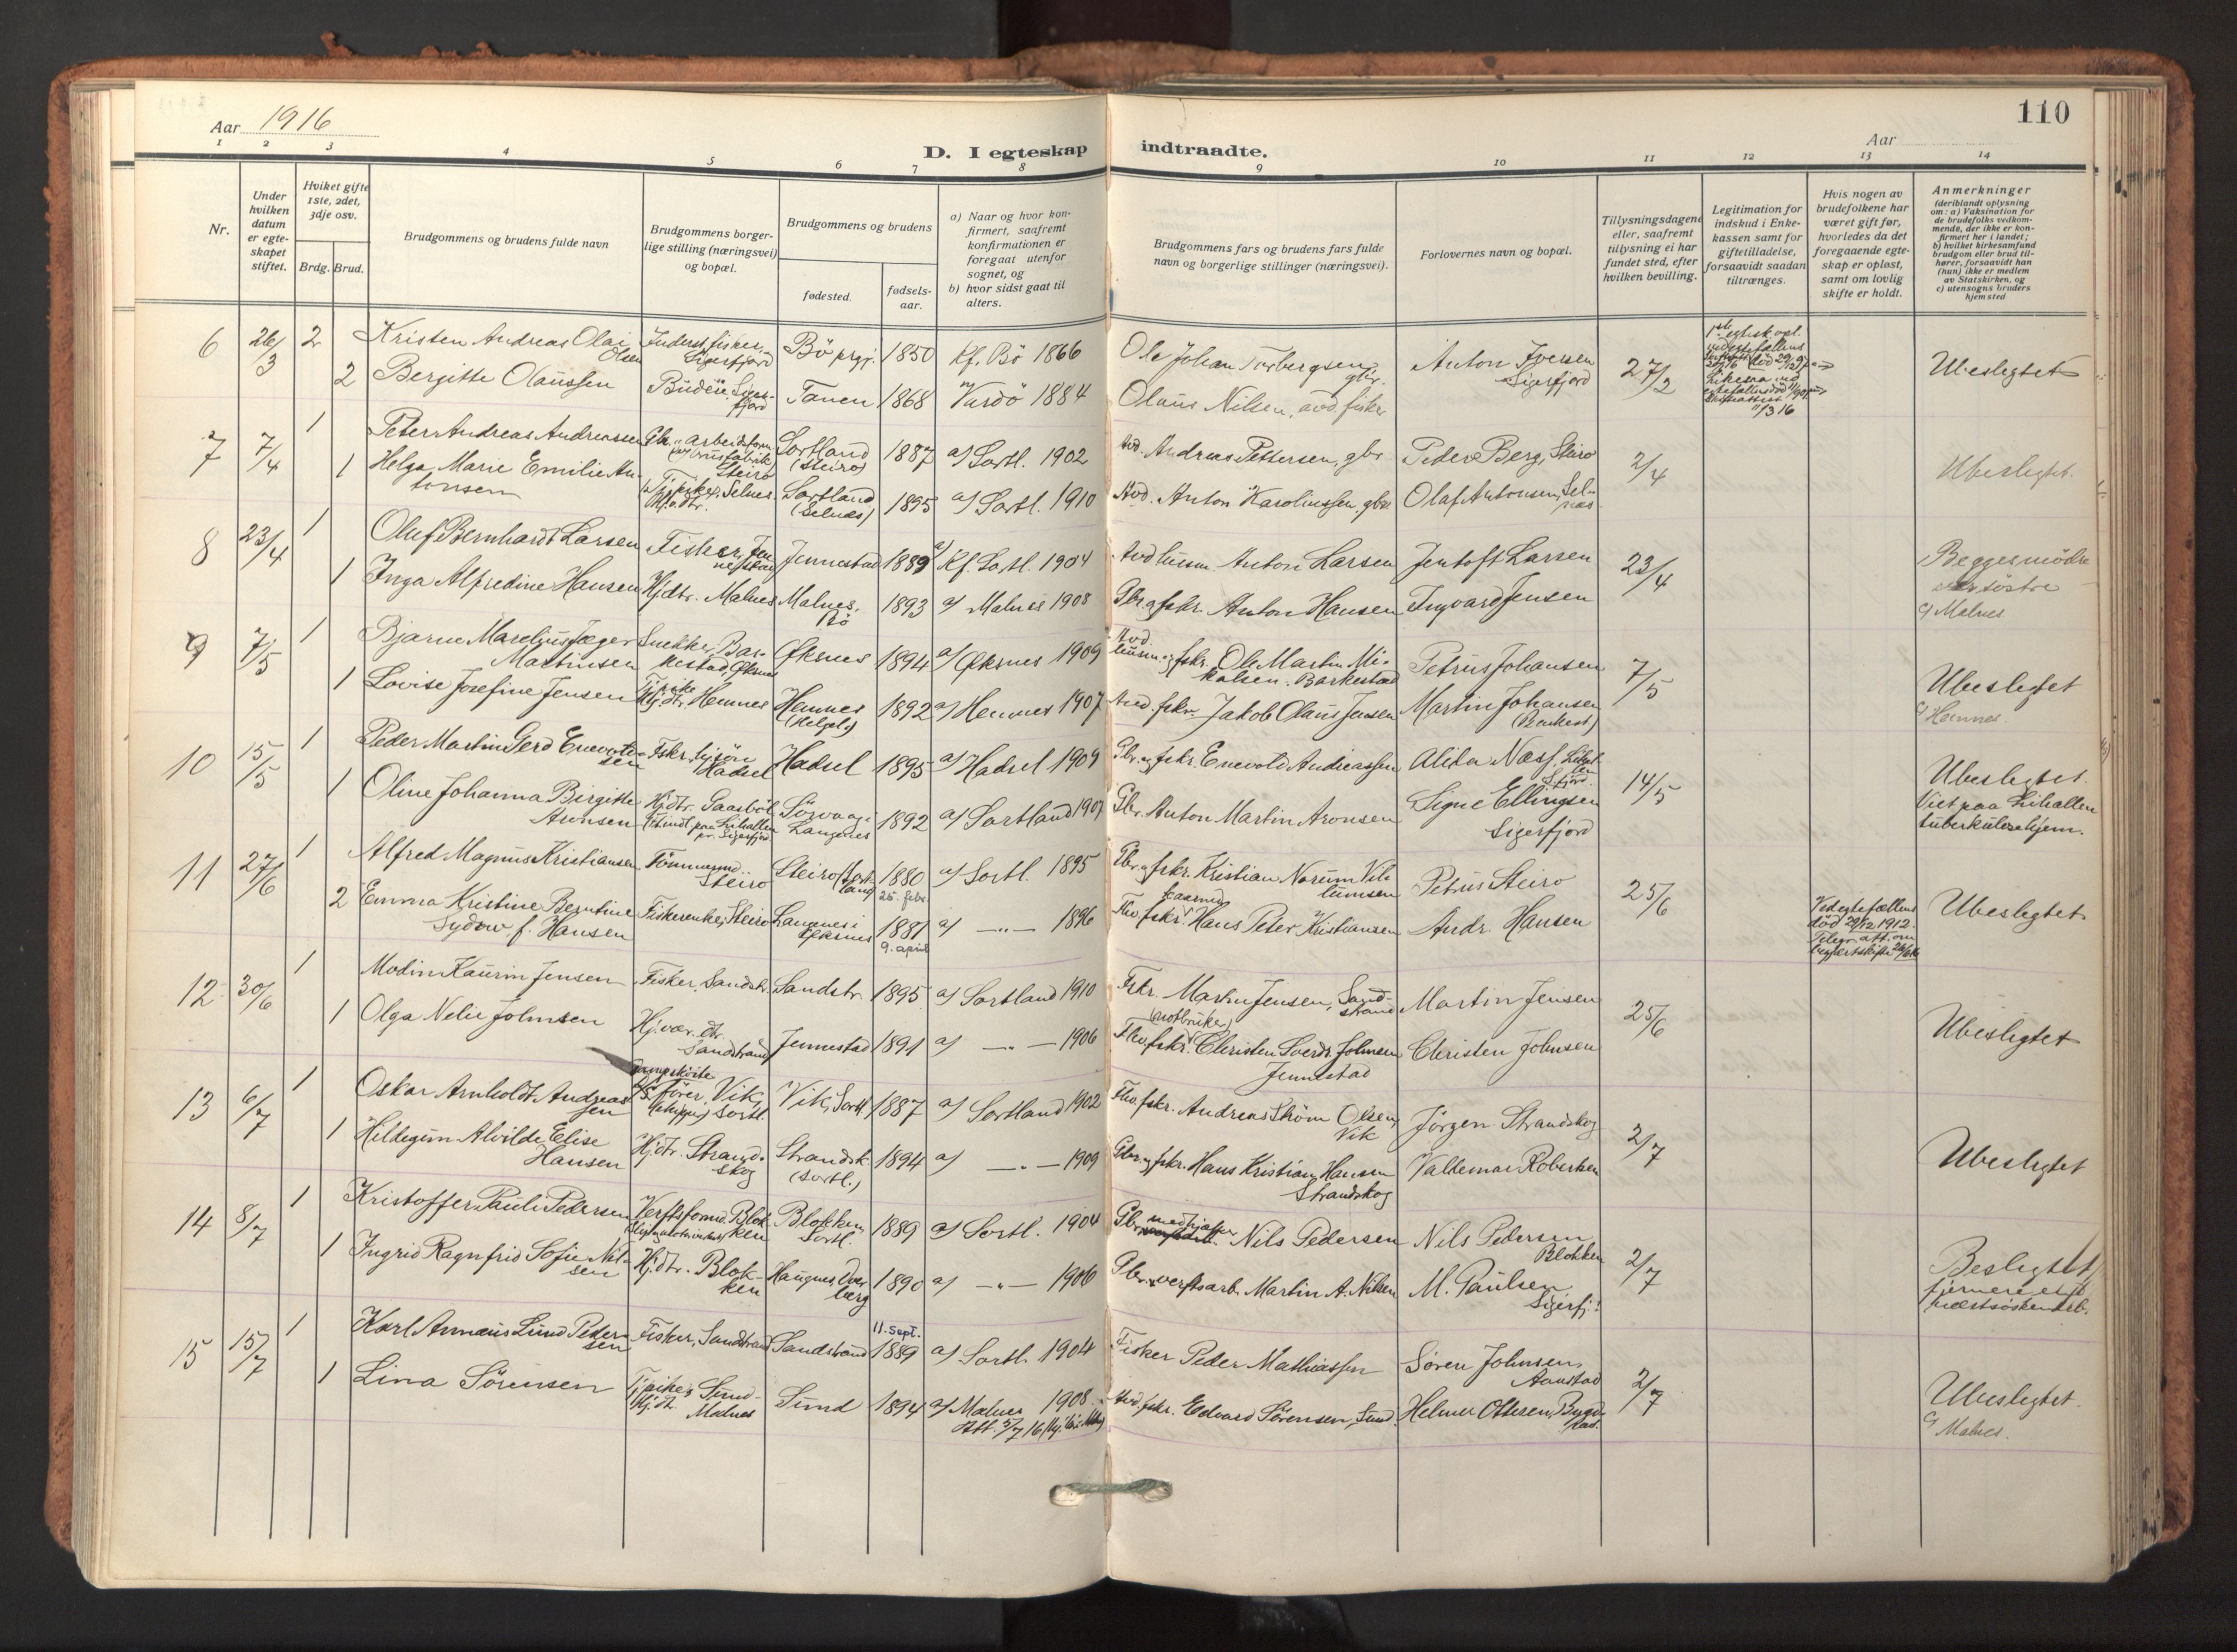 110
Aar 1916
Aar
D. I egteskap indtraadte.
1 2 3 4 5 6 7 8 9 10 11 12 13 14
Nr.
Under hvilken datum er egteskapet stiftet.
Hviket gifte 1ste, 2det, 3dje osv.
Brdg. Brud.
Brudgommens og brudens fulde navn
Brudgommens borgerlige stilling (næringsvei) og bopæl.
Brudgommens og brudens
fødested.
fødselsaar.
a) Naar og hvor konfirmert, saafremt konfirmationen er foregaat utenfor sognet, og
b) hvor sidst gaat til alters.
Brudgommens fars og brudens fars fulde navn og borgerlige stillinger (næringsvei).
Forlovernes navn og bopæl.
Tillysningsdagene eller, saafremt tillysning ei har fundet sted, efter hvilken bevilling.
Legitimation for indskud i Enkekassen samt for giftetilladelse, forsaavidt saadan tiltrænges.
Hvis nogen av brudefolkene har været gift før, hvorledes da det foregaaende egteskap er opløst, samt om lovlig skifte er holdt.
Anmerkninger (deriblandt oplysning om: a) Vaksination for de brudefolks vedkommende, der ikke er konfirmert her i landet; b) hvilket kirkesamfund brudgom eller brud tilhører, forsaavidt han (hun) ikke er medlem av Statskirken, og c) utensogns bruders hjemsted
6 26/3 2 Kristen Andreas Olai Olsen Inderst, fisker, Sigerfjord Bö prgj. 1850 Kf. Bö 1866 Ole Johan Torbergsen gbr. Anton Iversen Sigerfjord 27/2 Ubeslegtet
2 Bergitte Olaussen Budeie Sigerfjord Tanen 1868 Vardö 1884 Olaus Nilsen, avd. fisker
7 7/4 1 Peter Andreas Andreassen Steiro Sortland (Steiro) 1887 a) Sortl. 1902 Avd. Andreas Pettersen, gbr. Peder Berg, Steiro 2/4 Ubeslegtet.
1 Helga Marie Emilie Antonsen Selnes Sortland (Selnæs) 1895 a) Sortl. 1910 Avd. Anton Karoliussen, gbr Olaf Antonsen, Selnæs
8 23/4 1 Oluf Bernhardt Larsen Fisker, Jennestad Jennestad 1889 a) Kf. Sortl. 1904 Avd husm Anton Larsen Jentoft Larsen 23/4 Begges mödre er söstre
1 Inga Alfredine Hansen Hjdtr. Malnes Malnes, Bö 1893 a) Malnes 1908 Gbr og fskr. Anton Hansen Ingvard Jensen c) Malnes.
9 7/5 1 Bjarne Marelius Jæger Martinsen Snekker, Barkestad, Øksnes Øksnes 1894 a) Øksnes 1909 Avd. husm. og fskr. Ole Martin Mikalsen. Barkestad Petrus Johansen 7/5 Ubeslegtet
1 Lovise Josefine Jensen Hjdtr. Hemnes Hemnes (Helgel.) 1892 a) Hemnes 1907 Avd. fskr. Jakob Olaus Jensen Martin Johansen (Barkest) c) Hemnes.
10 15/5 1 Peder Martin Gerd Enevoldsen Fskr. Hadsel Hadsel 1895 a) Hadsel 1909 Gbr. og fskr. Enevold Andreassen Alida Næss, 14/5 Ubeslegtet. Viet paa Lihallen tuberkulosehjem.
1 Oline Johanna Birgitte Aronsen Hjdtr. Gaasböl paa Lihallen pr. Sigerfjord Sörvaag i Langenes 1892 a) Sortland 1907 Gbr. Anton Martin Aronsen Signe Ellingsen Sigerfjord
11 27/6 1 Alfred Magnus Kristiansen Tömmermd. Steiro Steiro (Sortland) 1880 25. febr. a) Sortl. 1895 Gbr. og fskr. Kristian Norum Villumsen Petrus Steiro 25/6 Ubeslegtet
2 Emma Kristine Berntine Sydow f. Hansen Fiskerenke, Steiro Langnes i Øksnes 1881 9. april a) —"— 1896 Fhv. fskr. Hans Peter Kristiansen Andr. Hansen Ved egtefællens död 29/12 1912.
12 30/6 1 Modin Kaurin Jensen Fisker, Sandstr. Sandstr. 1895 a) Sortland 1910 Fskr. Martin Jensen, Sandstrand Martin Jensen 25/6 Ubeslegtet
1 Olga Nelie Johnsen Hj.vær. dtr. Sandstrand Jennestad 1891 a) —"— 1906 (notbruker) Fhv. fskr. Christen Sverdr. Johnsen Jennestad Christen Johnsen
13 6/7 1 Oskar Arnholdt Andreassen förer, Vik, Sortl. Vik, Sortl 1887 a) Sortland 1902 Fhv. fskr. Andreas Ström Olsen Vik Jörgen Strandskog 2/7 Ubeslegtet
1 Hildegun Alvilde Elise Hansen Hjdtr. Strandskog Strandsk. (Sortl.) 1894 a) —"— 1909 Gbr. og fskr. Hans Kristian Hansen Strandskog Valdemar Robertsen
14 8/7 1 Kristoffer Pauli Pedersen Verftsformd. Blokken Blokken Sortl. 1889 a) Sortl. 1904 Gbr. Nils Pedersen Nils Pedersen Blokken 2/7 Beslegtet, fjernere end næstsöskenbarn.
1 Ingrid Ragnfrid Sofie Nilsen Hjdtr. Blokken Haugnes Dverberg 1890 a) —"— 1906 Gbr. verftsarb. Martin A. Nilsen M. Paulsen Sigerfj.
15 15/7 1 Karl Annæus Lund Pedersen Fisker, Sandstrand Sandstrand 11. Sept. 1889 a) Sortl. 1904 Fisker Peder Mathiassen Sören Johnsen, Aanstad 2/7 Ubeslegtet.
1 Lina Sörensen Hjdt. Sund Malnes Sund 1894 a) Malnes 1908. Att. 5/7 16 Avd. fskr. Edvard Sörensen, Sund. Helmer Ottesen, c) Malnes.